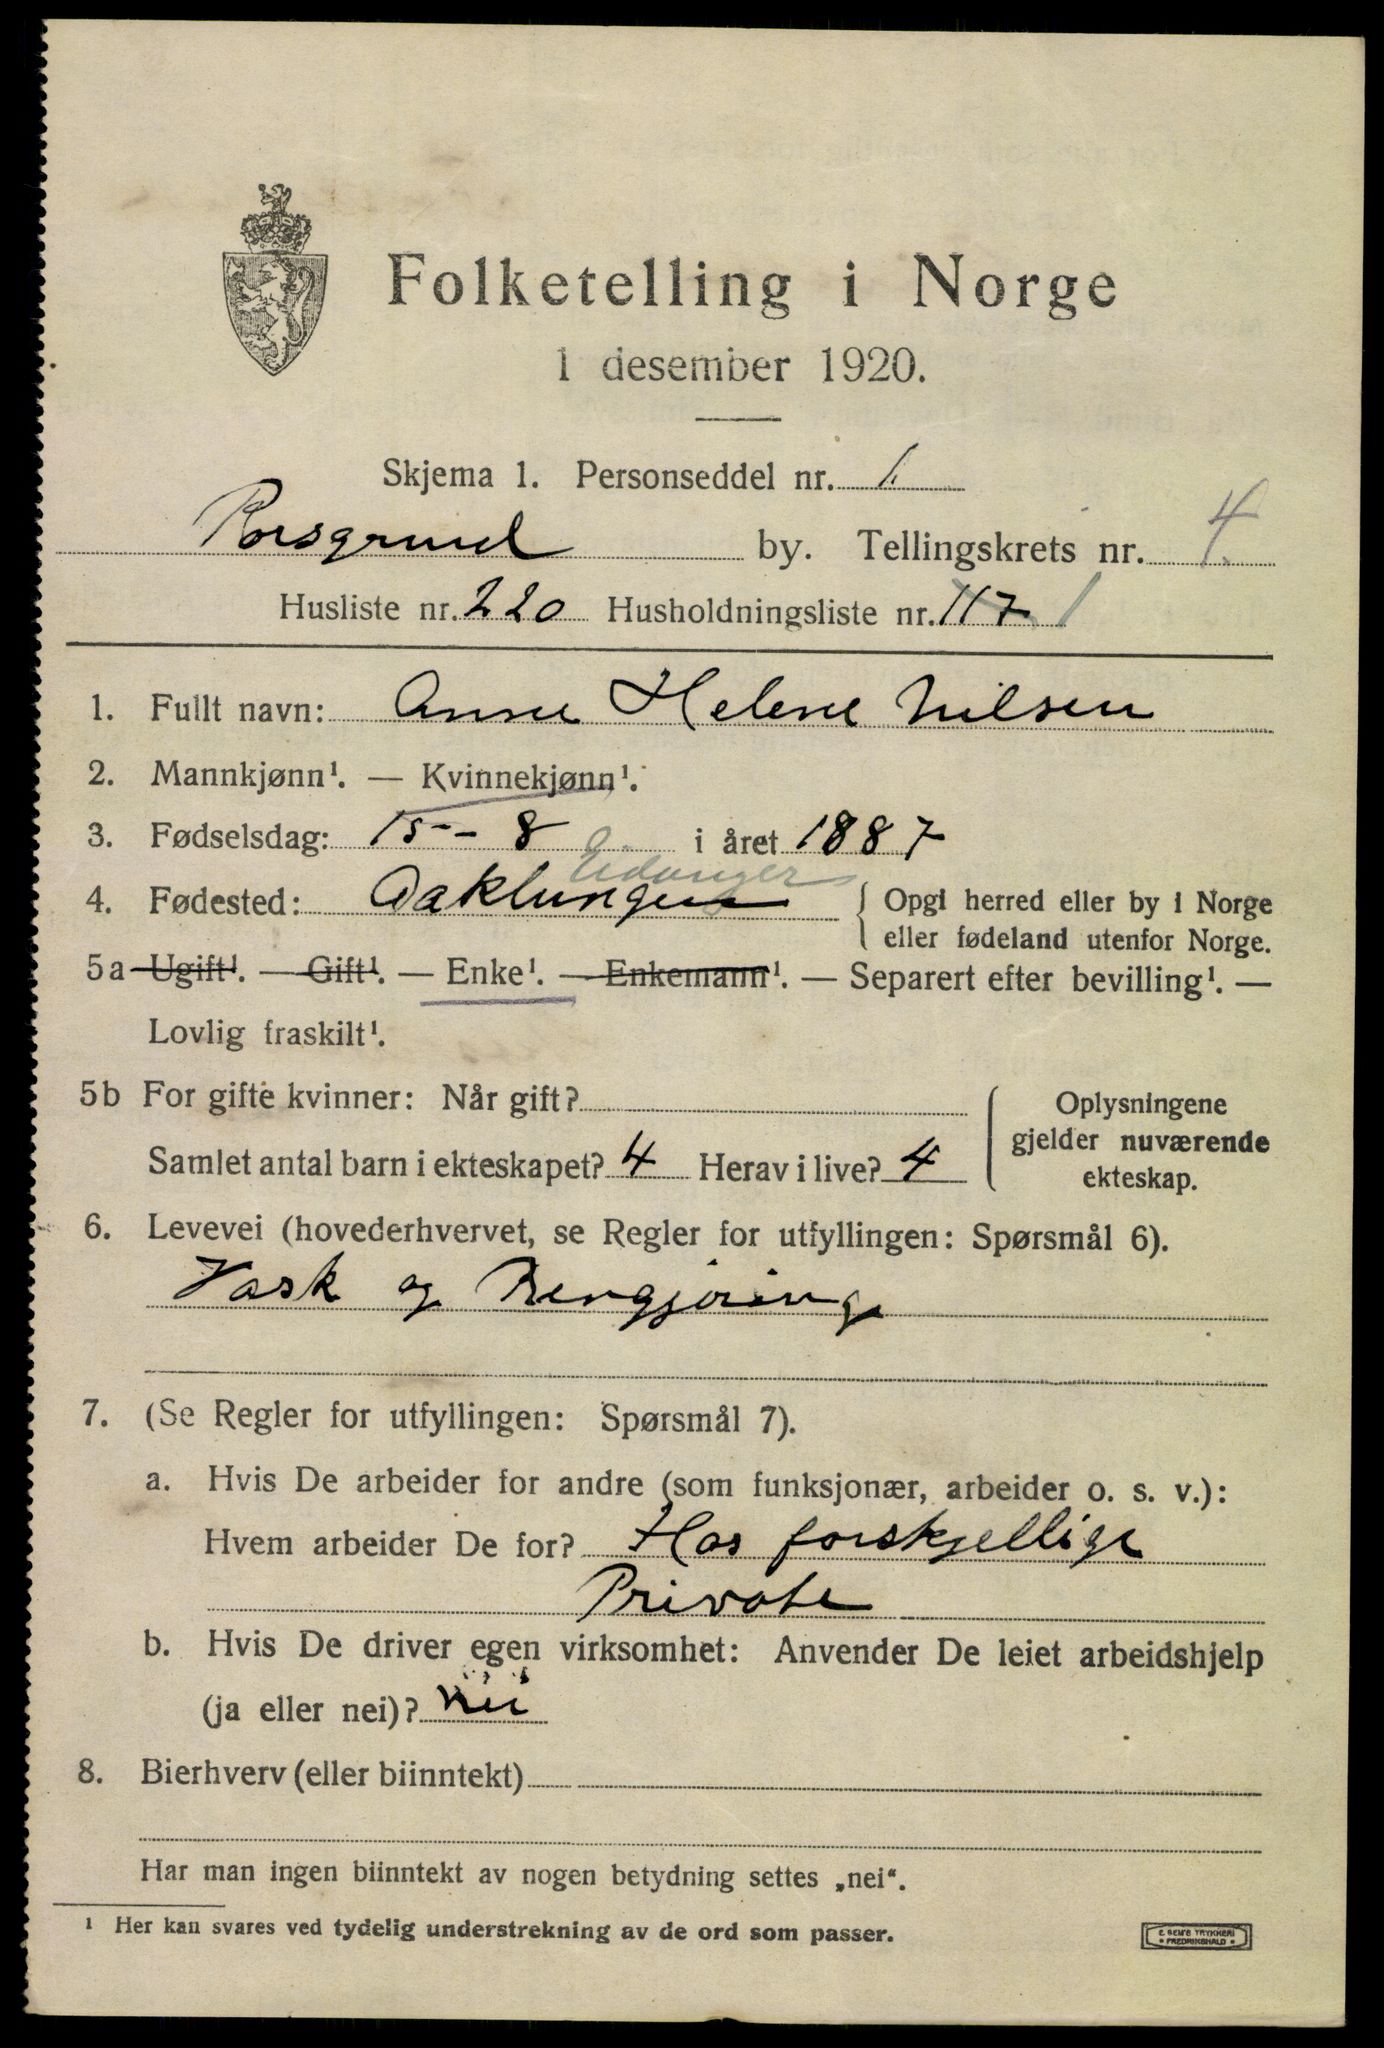 Folketelling i Norge
1 desember 1920.
Skjema 1. Personseddel nr. 1.
Porsgrund by. Tellingskrets nr. 4.
Husliste nr. 220 Husholdningsliste nr. 117 1
1. Fullt navn: Anne Helene Nilsen
2. Mannkjønn¹. — Kvinnekjønn¹.
3. Fødselsdag: 15 - 8 i året 1887
Eidanger
4. Fødested: Oaklungen { Opgi herred eller by i Norge
eller fødeland utenfor Norge.
5a Ugift¹. — Gift¹. — Enke¹. — Enkemann¹. — Separert efter bevilling¹. —
Lovlig fraskilt¹.
5b For gifte kvinner: Når gift?
Samlet antal barn i ekteskapet? 4 Herav i live? 4
Oplysningene
gjelder nuværende
ekteskap.
6. Levevei (hovederhvervet, se Regler for utfyllingen: Spørsmål 6).
Vask og Rengjøring
7. (Se Regler for utfyllingen: Spørsmål 7).
a. Hvis De arbeider for andre (som funksjonær, arbeider o. s. v.):
Hvem arbeider De for? Hos forskjellige
Private
b. Hvis De driver egen virksomhet: Anvender De leiet arbeidshjelp
(ja eller nei)? nei
8. Bierhverv (eller biinntekt)
Har man ingen biinntekt av nogen betydning settes „nei“.
¹ Her kan svares ved tydelig understrekning av de ord som passer.
E SEM'S TRYKKERI
* FREDRIKSHALD *